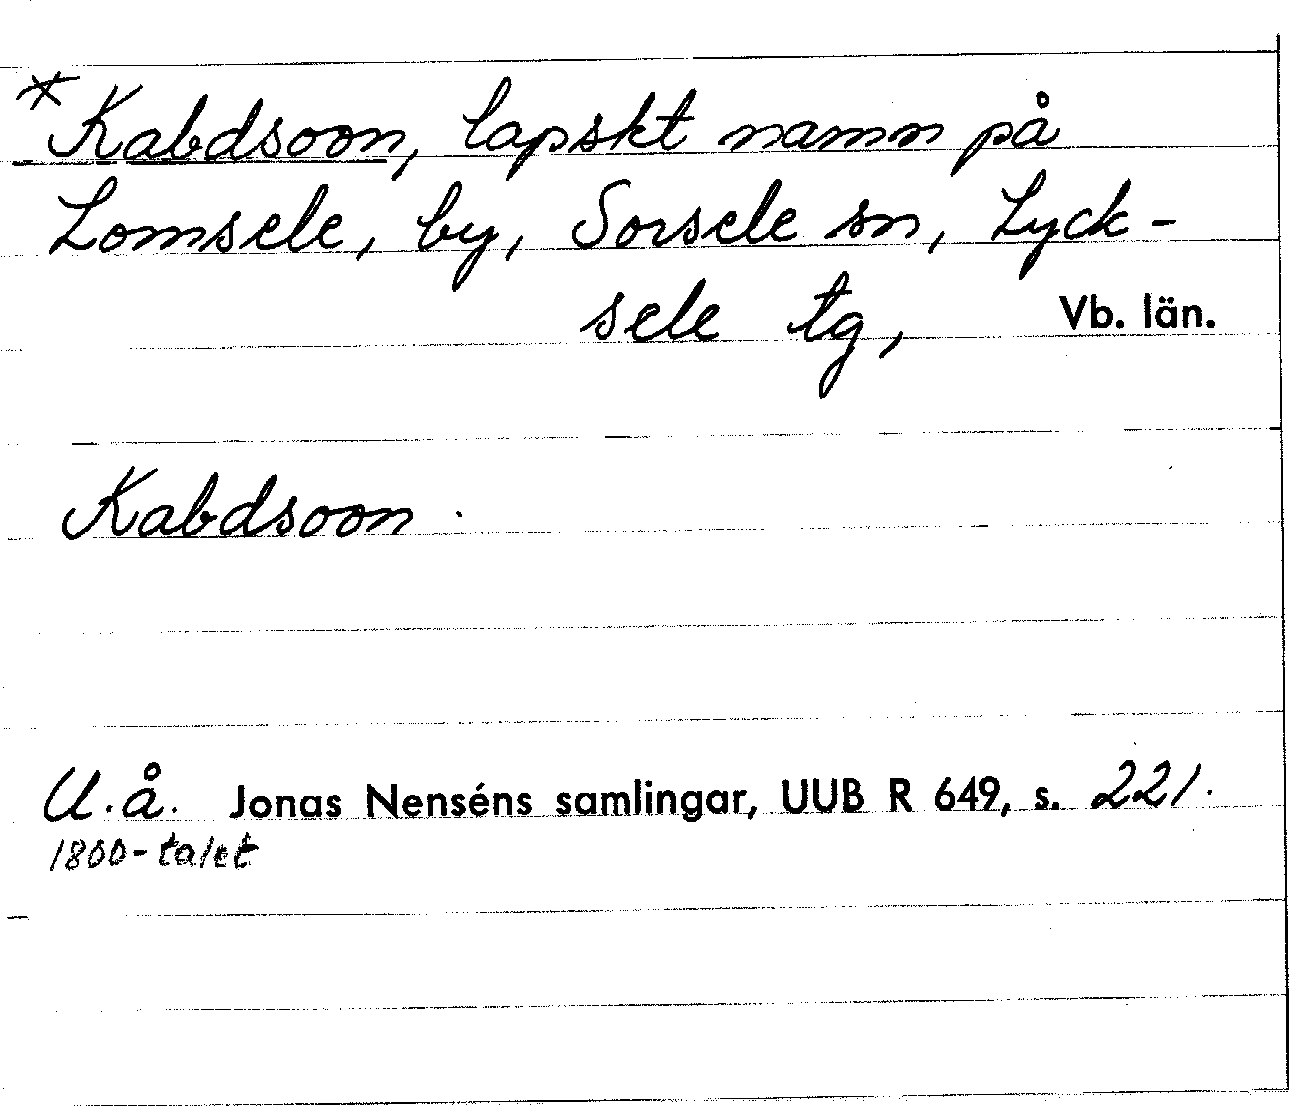 *Kabdsoon, lapskt namn på
Lomsele, by, Sorsele sn, Lyck-
sele tg, Vb. län.
Kabdsoon.
U.å. Jonas Nenséns samlingar, UUB R 649, s. 221.
1800-talet